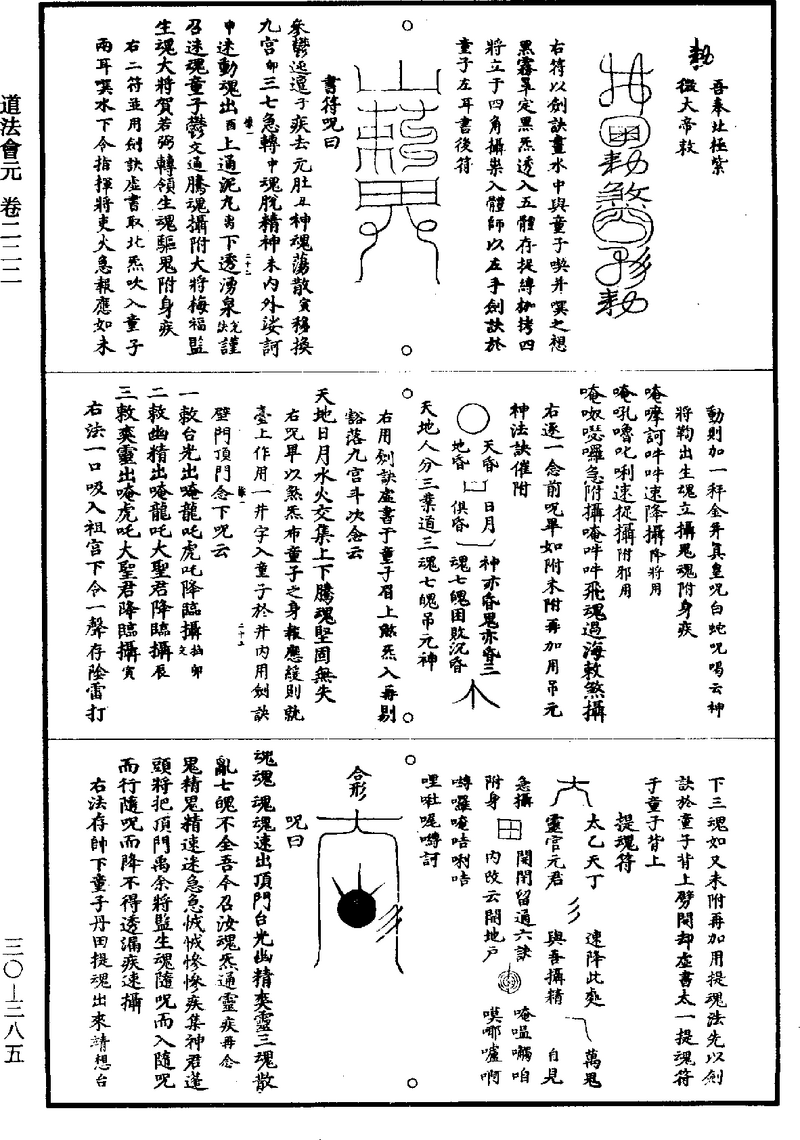 道法會元　卷二二二
三〇—三八五
勑　吾奉北極紫
微大帝敕
右符以劍訣畫水中與童子喫并噀之想
黑霧罩定黑炁透入五體存捉縛枷拷四
將立于四角攝祟入體師以左手劍訣於
童子左耳書後符
書符呪曰
九宮卯三七急轉申魂脫精神未內外
申速動魂出酉上通泥丸
下透湧泉
謹
召速魂童子鬱文通騰魂攝附大將梅福監
生魂大將賀若弼轉領生魂驅鬼附身疾
右二符並用劍訣虛書取北炁吹入童子
兩耳噀水下令指揮將吏火急報應如未
動則加一秤金井真皇呪白蛇呪喝云神
將鞫出生魂立攝鬼魂附身疾
唵嚤訶吽吽速降攝降將用
唵吼嚕叱唎速捉攝附邪用
唵奴囉急附攝唵吽吽飛魂過海敕煞攝
右逐一念前呪畢如附未附再加用吊元
神法訣催附
天昏　日月　神亦昏鬼亦昏三
地昏　俱昏　魂七魄困敗沉昏
天地人分三業道三魂七魄吊元神
右用劍訣虛書于童子眉上煞炁入再剔
豁落九宮斗次念云
天地日月水火交集上下騰魂堅固無失
右呪畢以煞炁布童子之身報應緩則就
臺上作用一井字入童子於井內用劍訣
壁門頂門念下呪云
一敕台光出唵龍吒虎吒降臨攝
二敕幽精出唵龍吒大聖君降臨攝辰
三敕爽靈出唵虎吒大聖君降臨攝寅
右法一口吸入祖宮下令一聲存陰雷打
下三魂如又未附再加用提魂法先以劍
訣於童子背上劈開却虛書太一提魂符
于童子背上
提魂符
太乙天丁　速降此處　萬鬼
靈官元君　與吾攝精　自見
急攝　關閉留通六訣
附身　內改云開地戶
合形
呪曰
魂魂魂魂速出頂門台光幽精爽靈三魂散
亂七魄不全吾今召汝魂炁通靈疾再念
鬼精鬼精速迷急急慘慘疾集神君逢
頭將把頂門禹余將監生魂隨呪而入隨呪
而行隨呪而降不得透漏疾速攝
右法存帥下童子丹田提魂出來請想台